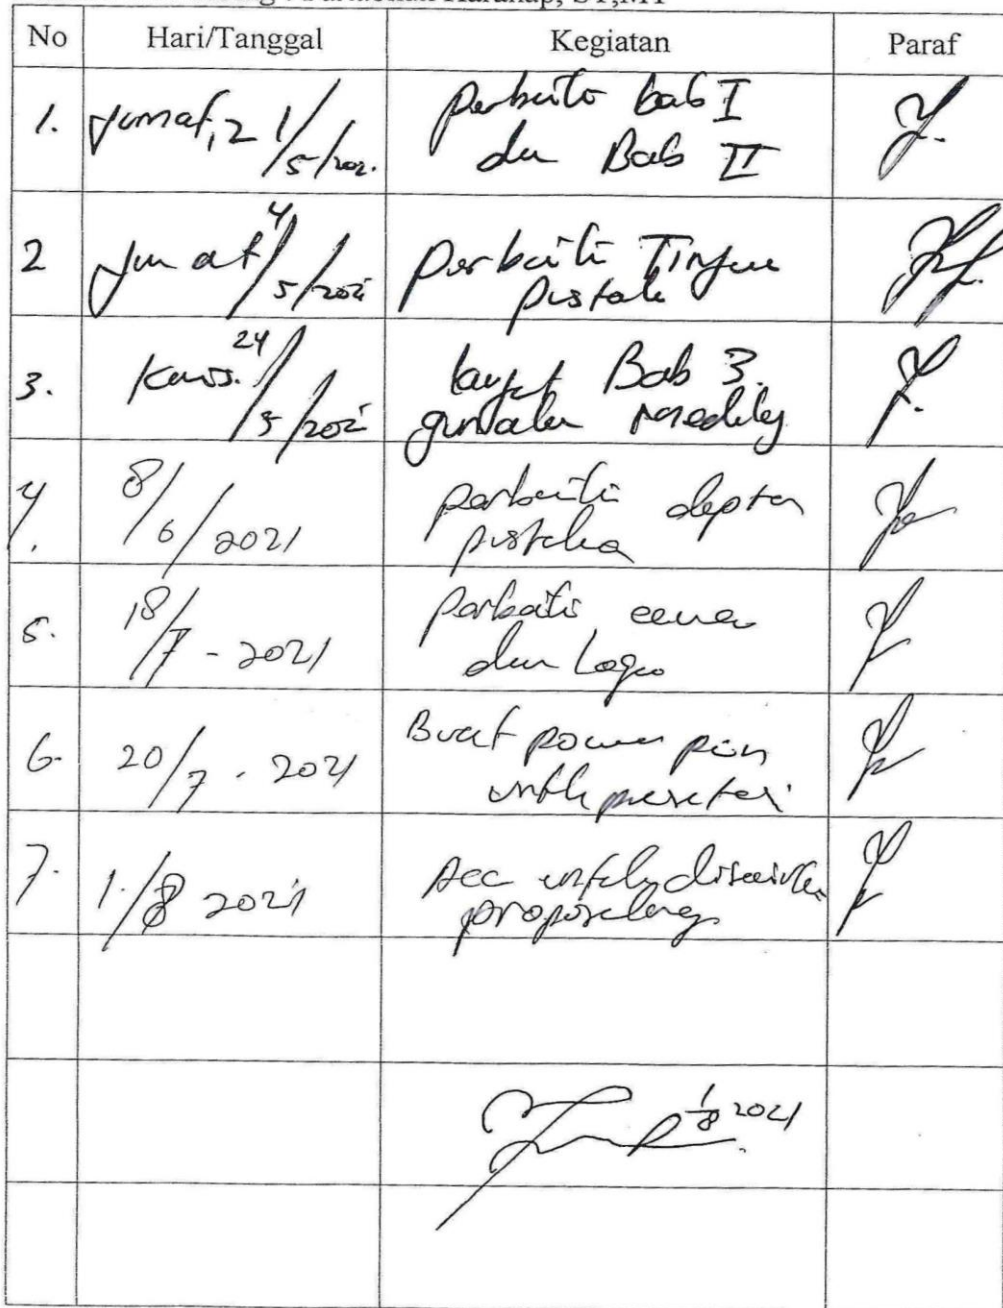 Harahap, ST,MT
No Hari/Tanggal Kegiatan Paraf
1. Jumat, 2 1/5/202. perbaiki bab I
dan Bab II
2 Jumat 4/5/2021 perbaiki Tinjauan
pustaka
3. Kamis. 24/5/2021 lanjut Bab 3.
gunakan
4. 8/6/2021 perbaiki daptar
pustaka
5. 18/7 - 2021 perbaiki cover
dan Logo
6. 20/7 - 2021 Buat power poin
untk
7. 1/8 2021 Acc untuk
1/8 2021